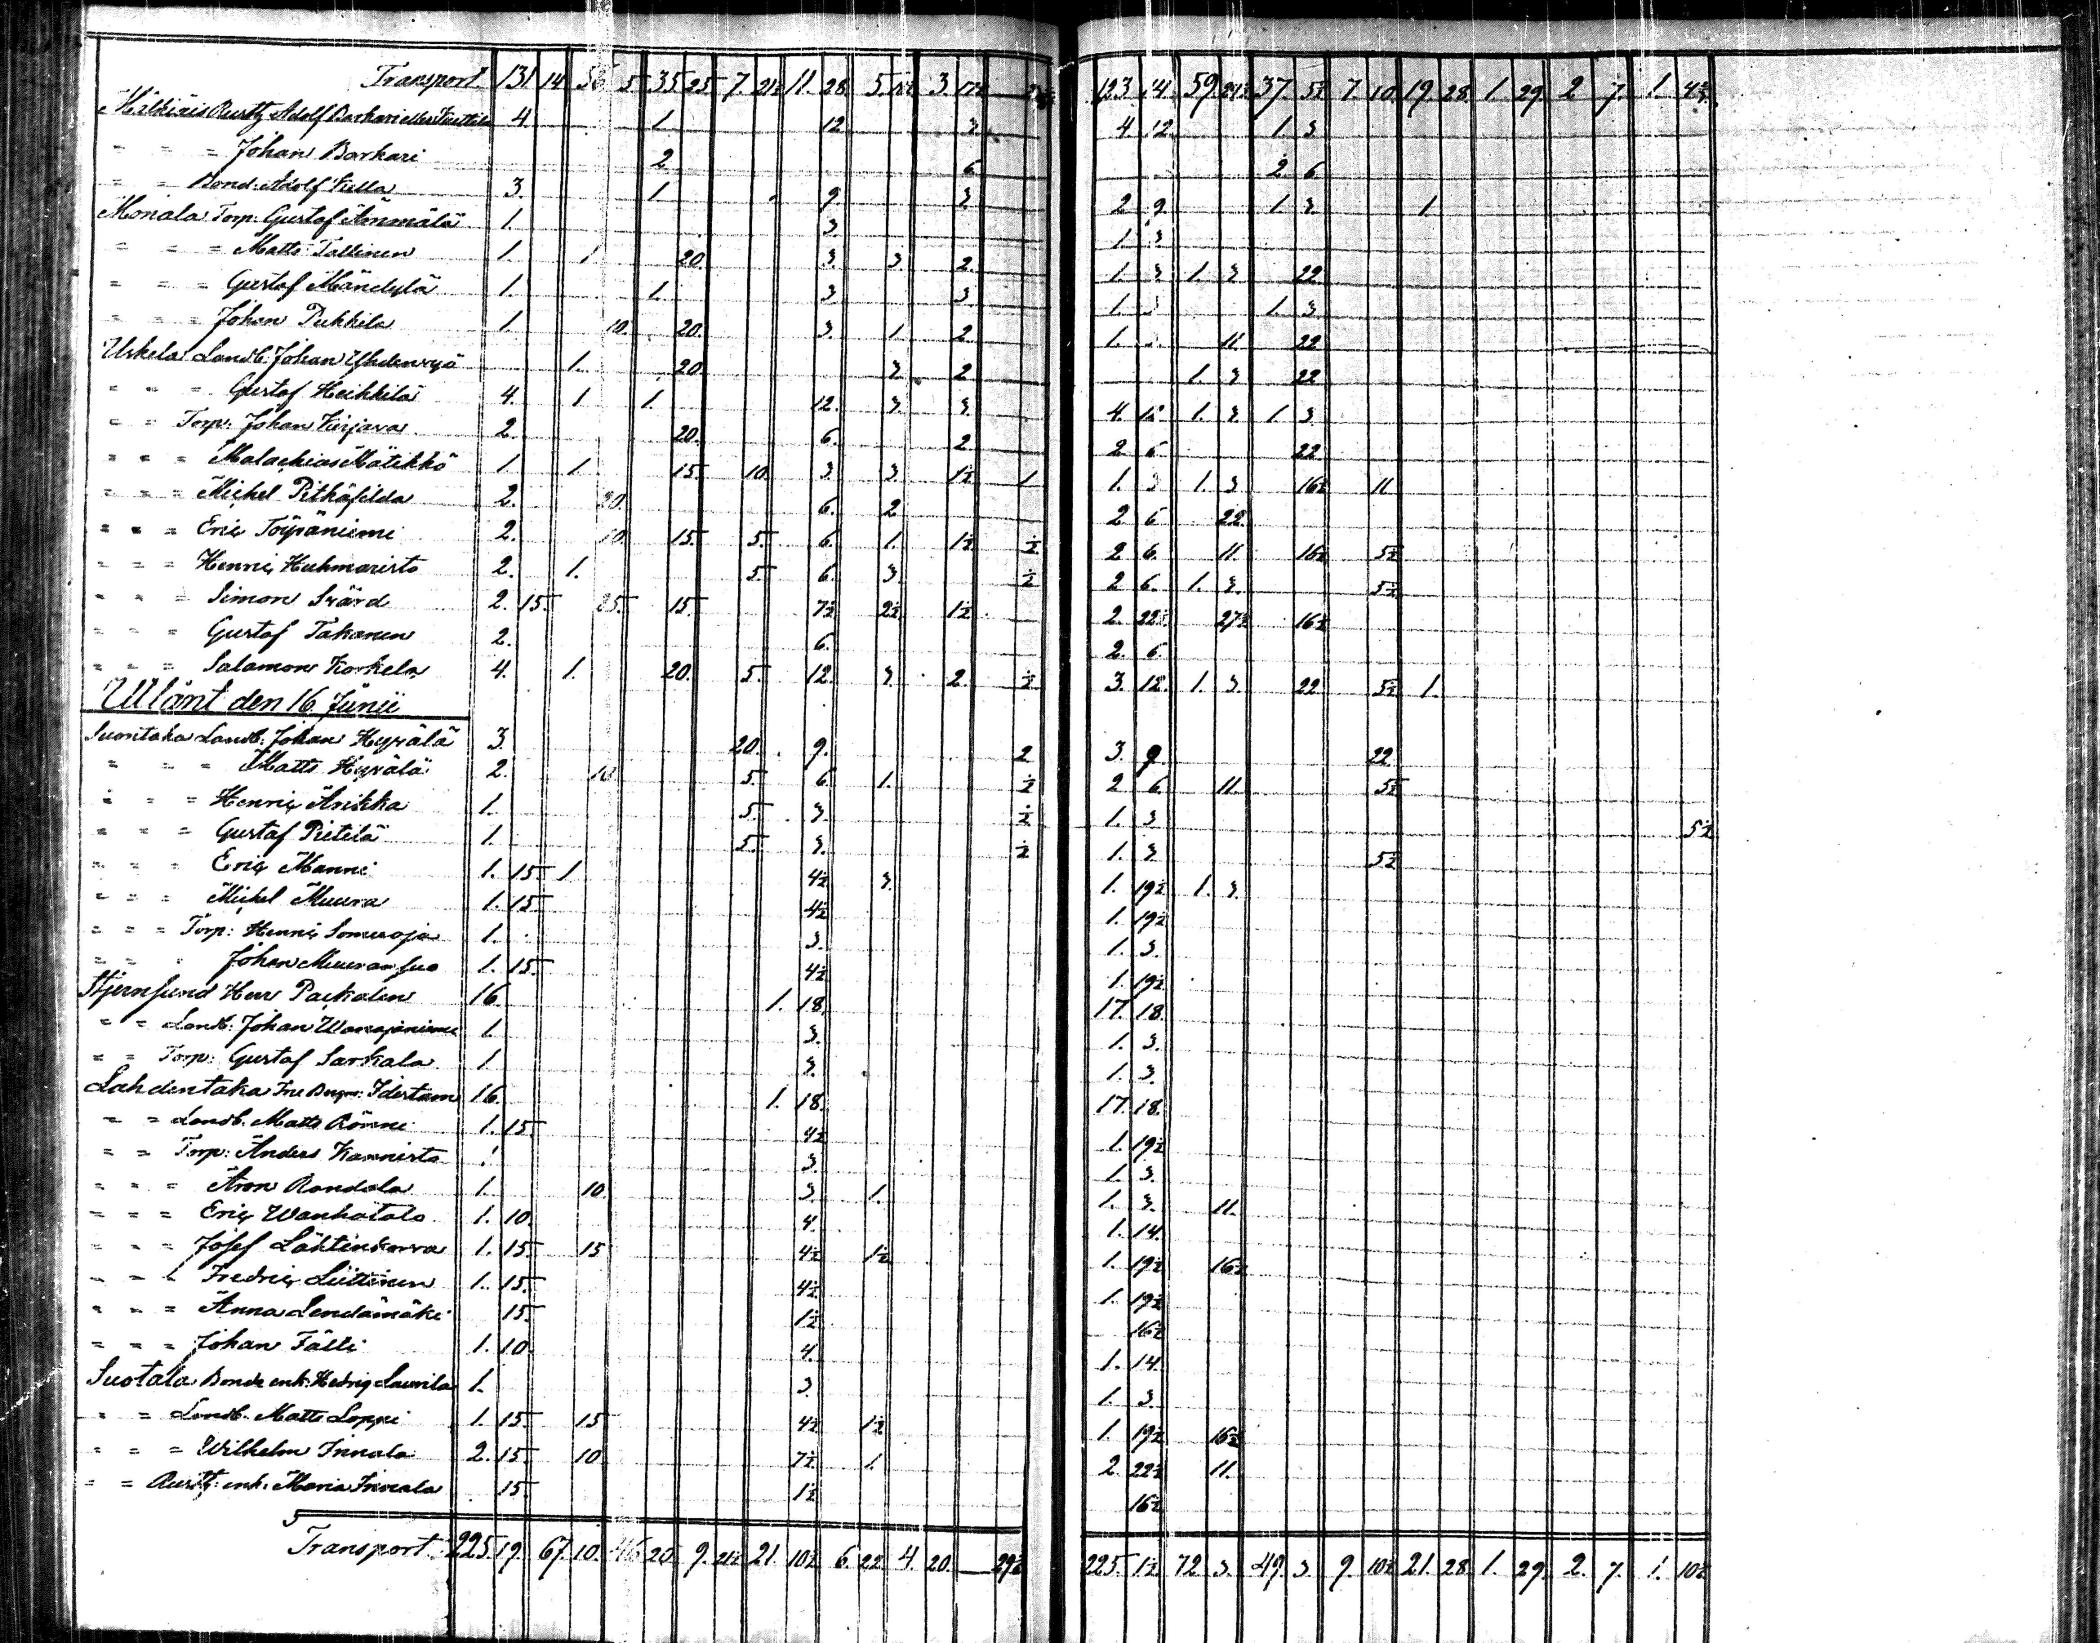 Transport 131 14 56 5 35 25 7 21½ 11 28 5 3 123 14 59 24½ 37 5½ 7 10 19 28 1 29 2 7 1
Rustg Adolf 4 1 12 3 4 12 1 3
" " = Johan Barkari 2 6 2 6
" " Bond: Adolf 3 1 9 3 2 9 1 3 1
Moriala Torp: Gustaf Ämmälä 1 3 1 3
" " = Matts Tallinen 1 1 20 3 3 2 1 3 1 3 22
" " = Gustaf Mändylä 1 1 3 3 1 3 1 3
" " = Johan Pukkila 1 10 20 3 1 2 1 11 22
Uskela Landb: Johan 1 20 3 2 1 3 22
" " = Gustaf Heikkilä 4 1 1 12 3 3 4 12 1 3 1 3
" = Torp: Johan Kirjava 2 20 6 2 2 6 22
" " = Malachias Mätikkö 1 1 15 10 3 3 1½ 1 1 3 1 3 16½ 11
" " = Michel 2 20 6 2 2 6 22
" " = Eric Torpäniemi 2 10 15 5 6 1 1½ ½ 2 6 11 16½ 5½
" " = Henric Huhmaristo 2 1 5 6 3 ½ 2 6 1 3 5½
" " = Simon Svärd 2 15 25 15 7½ 2½ 1½ 2 22½ 27½ 16½
" " = Gustaf Takanen 2 6 2 6
" " = Salamon Korkela 4 1 20 5 12 3 2 ½ 3 12 1 3 22 5½ 1
Ulånt den 16 Junii
Suontaka Landb: Johan Hyrälä 3 20 9 2 3 9 22
" " = Matts Hyrälä 2 10 5 6 1 ½ 2 6 11 5½
" " = Henric Anikka 1 5 3 ½ 1 3 5½
" " = Gustaf Pietilä 1 5 3 ½ 1 3 5½
" " " Eric Manni 1 15 1 4½ 3 1 19½ 1 3
" " = Michel Muura 1 15 4½ 1 19½
" " = Torp: Henric Someroja 1 3 1 3
" " " Johan Muuransuo 1 15 4½ 1 19½
Stjernsund Herr Packalen 16 1 18 17 18
" = Landb: Johan 1 3 1 3
" = Torp: Gustaf Sarkala 1 3 1 3
Lahdentaka Idestam 16 1 18 17 18
" = Landb. Matts Rönni 1 15 4½ 1 19½
" = Torp: Anders Kannisto 1 3 1 3
" " = Aron Randala 1 10 3 1 1 3 11
" " = Eric Wanhatalo 1 10 4 1 14
" " = Josef Lähtinkorva 1 15 15 4½ 1½ 1 19½ 16½
" " = Fredric 1 15 4½ 1 19½
" " = Anna Lendämäki 15 1½ 16½
" " = Johan Tälli 1 10 4 1 14
Suotala Bonde enk: Hedvig Laurila 1 3 1 3
" = Landb. Matts Loppi 1 15 15 4½ 1½ 1 19½ 16½
" " = Wilhelm Innala 2 15 10 7½ 1 2 22½ 11
" = Rustg: enk: Maria 15 1½ 16½
Transport 225 19 67 10 46 20 9 21½ 21 10½ 6 22 4 20 — 29½ 225 1½ 72 3 49 3 9 10½ 21 28 1 29 2 7 1 10½